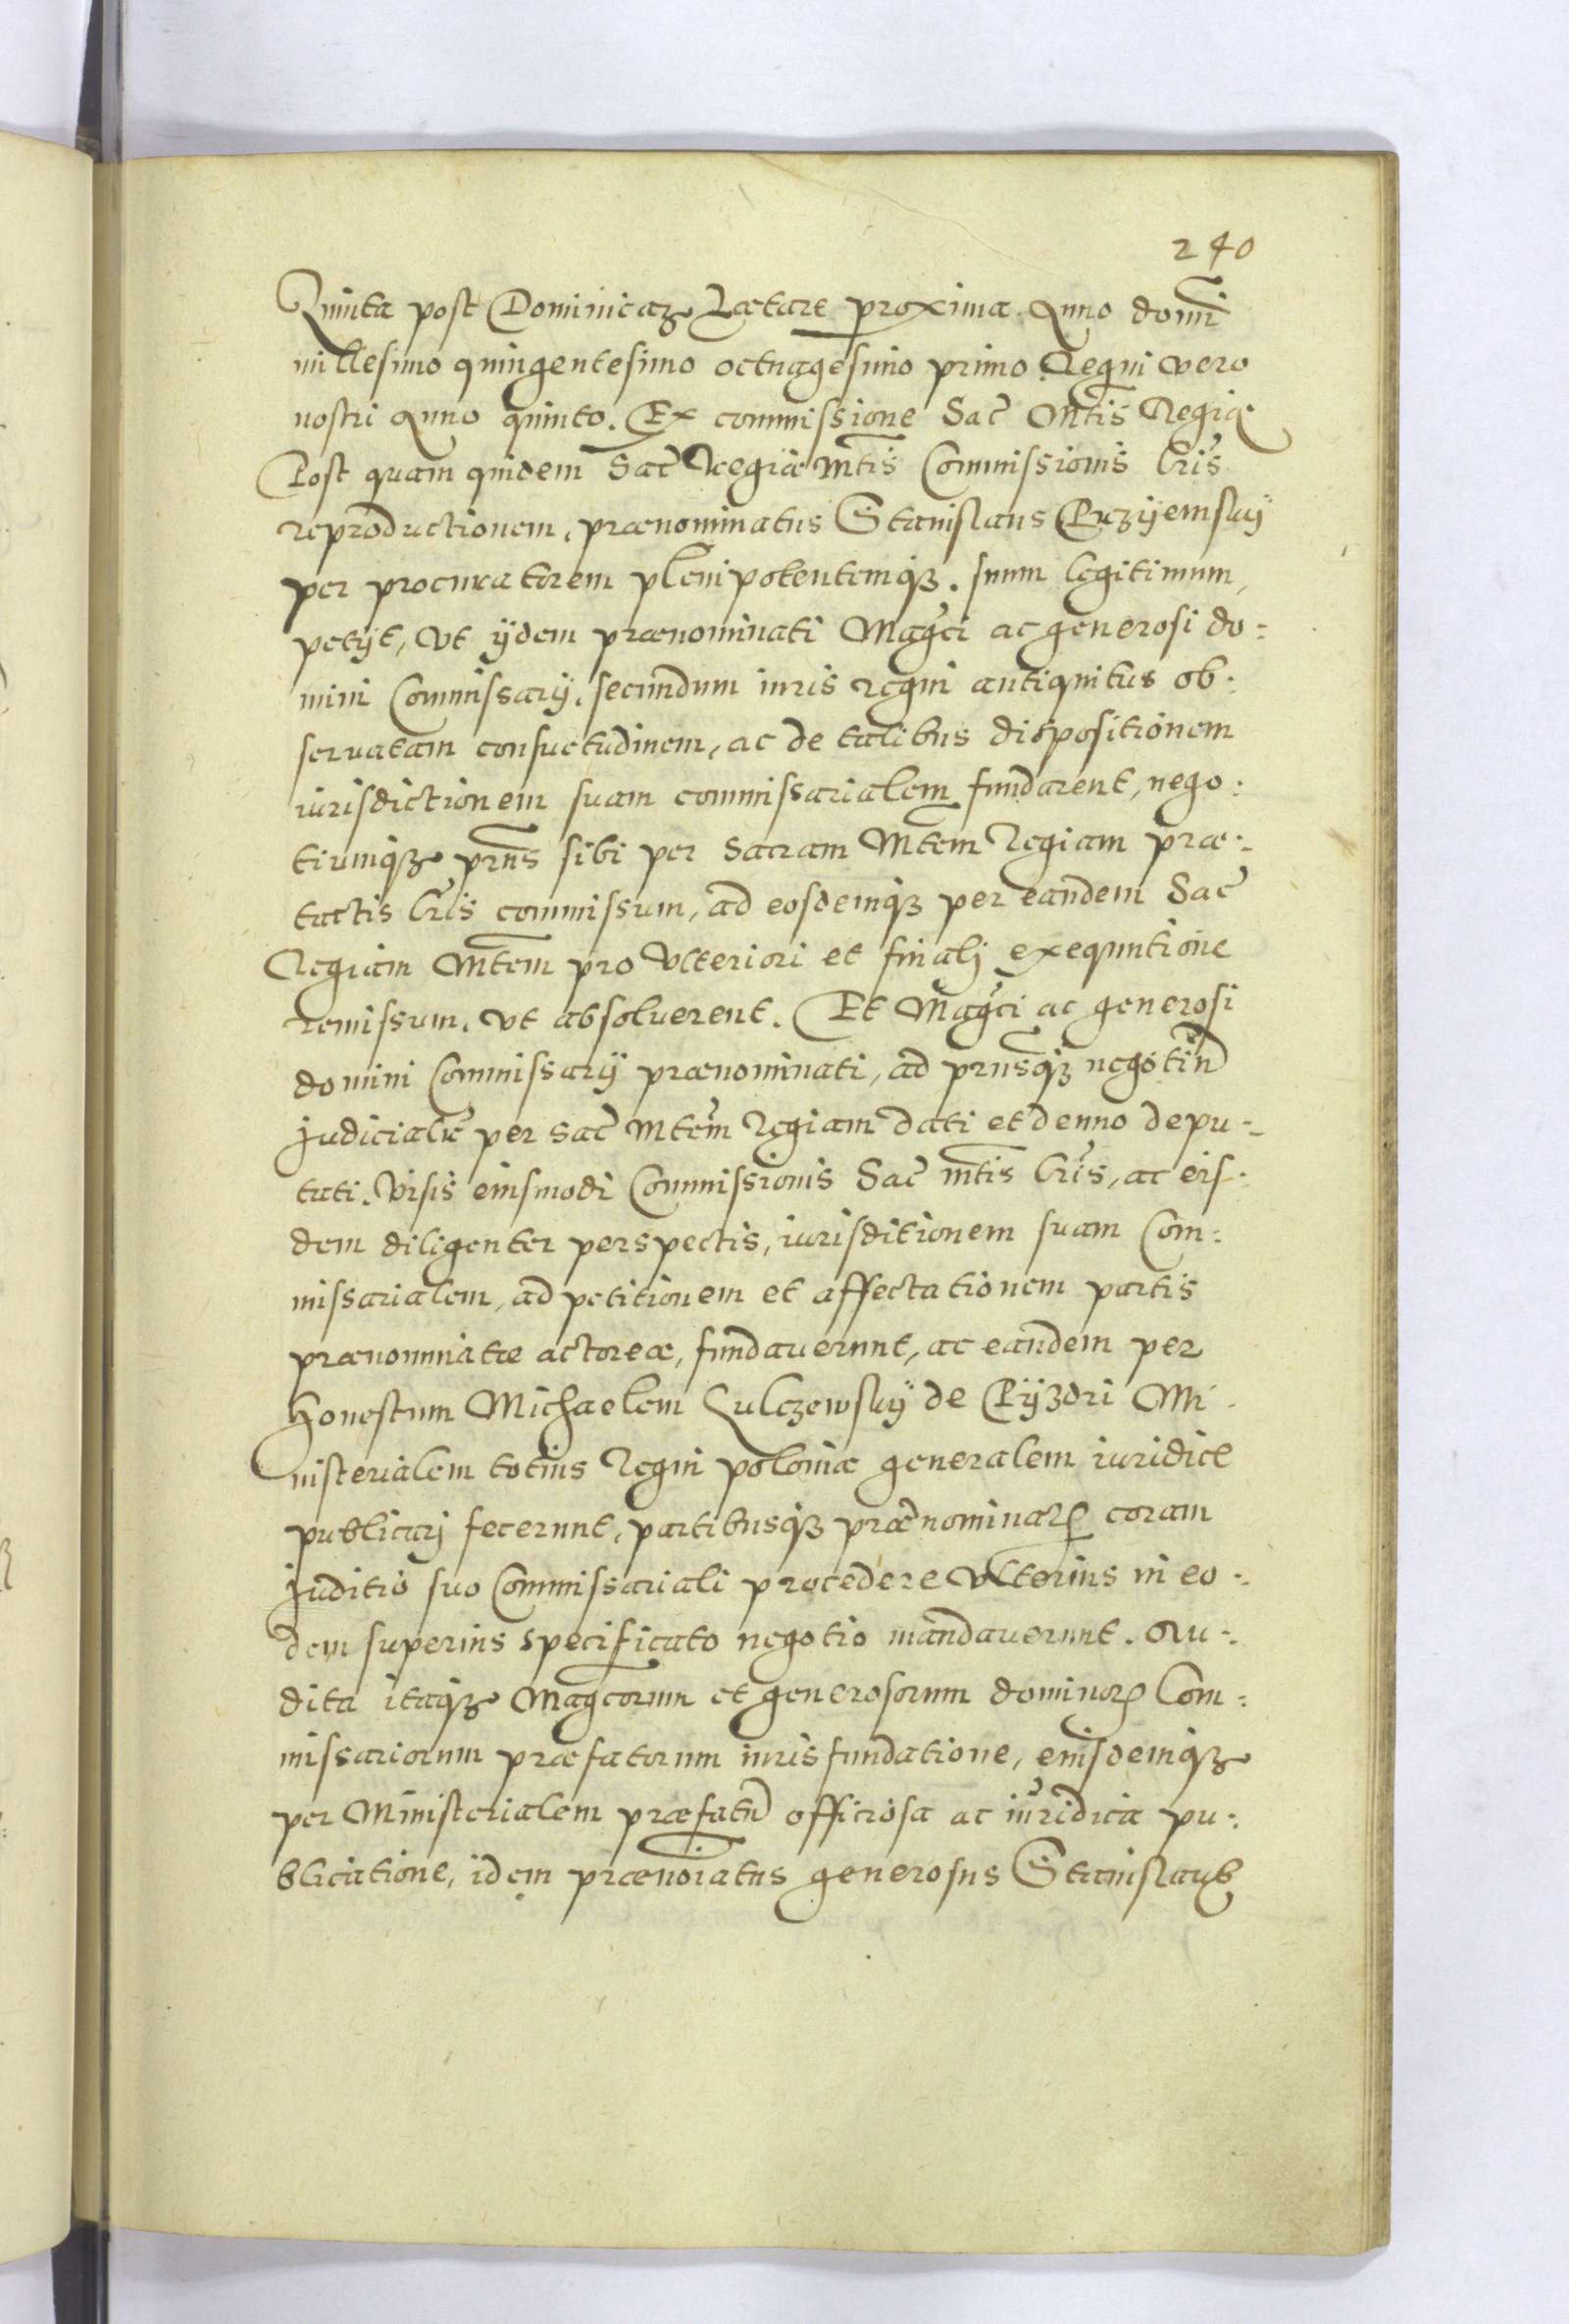 240
Quinta post Dominicaʒ Lætare proxima Anno domi͂
millesimo quingentesimo octuagesimo primo Regni vero
nostri Anno quinto. Ex commissione Sac̃ Mtis̃ Regiæ
Post quam quidem Sac̃ Regiæ Mtis̃ Commissionis Lr̃is
reproductionem, prænominatus Stanislaus
per procuratorem plenipotentemqʒ. suum legitimum,
petÿt, vt ÿdem prænominati Magc̃i ac generosi do:
mini Commissarÿ, secundum iuris regni antiquitus ob:
seruatam consuetudinem, ac de talibus dispositionem
iurisdictionem suam commissarialem fundarent, nego:
tiumqʒ prñs sibi per Sacram Mtem̃ Regiam præ:
tactis Lr̃is commissum, ad eosdemqʒ per eandem Sac̃
Regiam Mtem̃ pro vlteriori et finalj exequutione
remissum, vt absoluerent. Et Magc̃i ac generosi
domini Commissarÿ prænominati, ad prñsqʒ negotiũ
Judicialr̃ per sac̃ Mtem̃ Regiam dati et denuo depu:
tati. Visis eiusmodi Commissionis Sac̃ Mtis̃ Lr̃is, ac eis:
dem diligenter perspectis, iurisditionem suam Com:
missarialem, ad petitionem et affectationem partis
prænominatæ actoreæ, fundauerunt, ac eandem per
Honestum Michaelem Lulczewskÿ de Pÿzdri Mi
nisterialem totius Regni poloniæ generalem iuridice
publicarj fecerunt, partibusqʒ prænominatꝭ coram
Juditio suo Commissariali procedere vlterius in eo:
dem superius specificato negotio mandauerunt. Au:
dita itaqʒ Magcorum et generosorum dominorꝫ Com:
missariorum præfatorum iuris fundatione, eiusdemqʒ
per Ministerialem præfatũ officiosa ac iuridica pu:
blicatione, idem prænoĩatus generosus Stanislaus